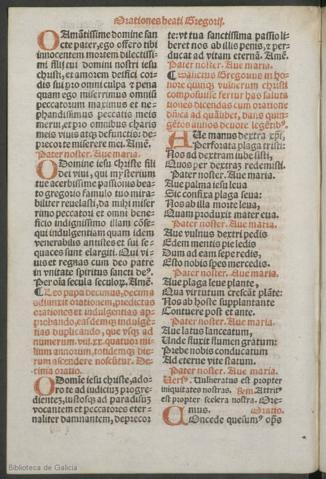 Orationes beati Gregorij.
O Amãtissime domine san
cte pater, ego offero tibi
innocentem mortem dilectissi-
mi filij tui domini nostri iesu
christi, et amorem deifici cor-
dis sui pro omni culpa et pena
quam ego miserrimus omniũ
peccatorum maximus et ne-
phandissimus peccatis meis
merui, et pro omnibus charis
meis viuis atque defunctis: de-
precor te miserere mei. Amẽ.
Pater noster. Aue maria.
O Domine iesu christe fili
dei viui, qui mysterium
tue acerbissime passionis bea-
to gregorio famulo tuo mira-
biliter reuelasti, da mihi miser
rimo peccatori et omni bene-
ficio indignissimo illam cõse-
qui indulgentiam quam idem
venerabilis antistes et sui se-
quaces sunt elargiti. Qui vi-
uis et regnas cum deo patre
in vnitate spiritus sancti de?
Per oĩa secula seculoꝝ. Amẽ.
Leo papa decimus, decima
adiunxit orationem, predictas
orationes et indulgentias ap-
probando, easdemque indulgẽ-
tias duplicando, que vsque ad
numerum.
milium annorum, totidemque die-
rum ascendere noscũtur. De-
cima oratio.
O Domine iesu christe, ado-
ro te ad iudiciũ progre-
dientem, iustosque ad paradisuz
vocantem et peccatores eter-
naliter damnantem, deprecor
te: vt tua sanctissima passio li-
beret nos ab illis penis, et per-
ducat ad vitam eternã. Amẽ.
Pater noster. Aue maria.
Sanctus Gregorius in ho-
nore quinque vulnerum christi
composuisse fertur has saluta
tiones dicendas cum oratione
dñica ad quãlibet, dans quin-
gẽtos annos deuote legẽtibus.
Aue manus dextra xp̃i,
Perforata plaga tristi:
Nos ad dextram iube sisti,
Quos per dextraz redemisti.
Pater noster. Aue maria.
Aue palma iesu leua
Sic confixa plaga seua:
Nos ab illa morte leua,
Quam produxit mater eua.
Pater noster. Aue maria.
Aue vulnus dextri pedis
Edem mentis pie ledis
Dum ad eam sepe redis,
Esto nobis spes mercedis.
Pater noster. Aue maria.
Aue plaga leue plante,
Qua virtutum crescãt plãte:
Nos ab hoste supplantante
Contuere post et ante.
Pater noster. Aue maria.
Aue latus lanceatum,
Unde fluxit flumen gratum:
Prebe nobis conducatum
Ad eterne vite statum.
Pater noster. Aue maria.
Vers? Vulneratus est propter
iniquitates nostras. Attrit?
est propter scelera nostra. Ore
mus. Oratio.
Concede quesum? op̃s
Biblioteca de Galicia